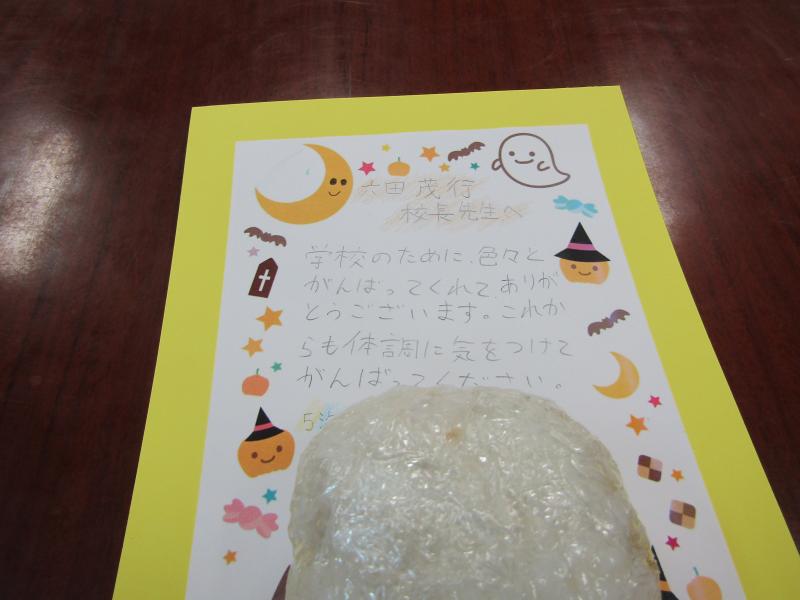 六田 茂行
校長先生へ
学校のために、色々と
がんばってくれて、ありが
とうございます。これか
らも体調に気をつけて
がんばってください。
5